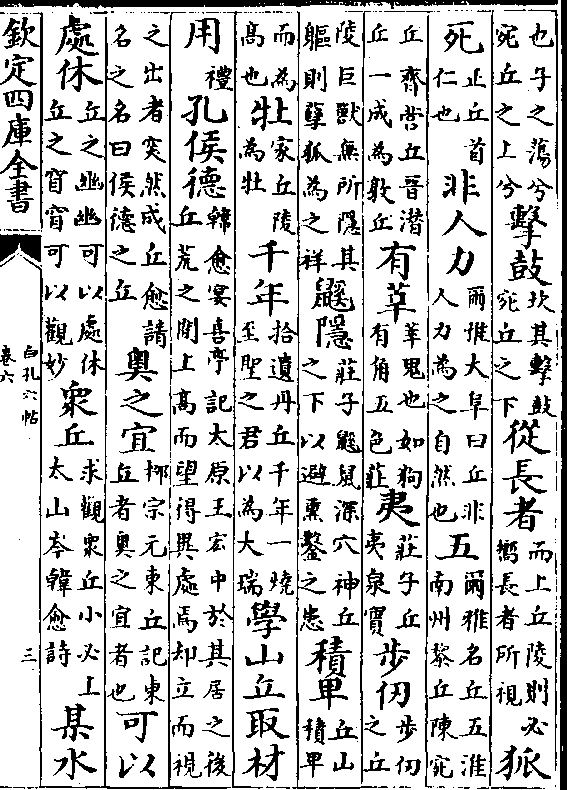 也子之蕩兮宛丘之上兮擊鼓坎其擊鼓宛丘之下從長者而上丘陵則必嚮長者所視狐
死正丘首仁也非人力爾惟大阜曰丘非人力為之自然也五爾雅名丘五淮南州黎丘陳宛
丘齊營丘晉潛丘一成為敦丘有莘莘鬼也如狗有角五色莊夷莊子丘夷泉實步仞步仞之丘
陵巨獸無所隱其軀則孽狐為之祥鼷隱莊子鼷鼠深穴神丘之下以避熏鑿之患積卑丘山積卑
而為高也牡家丘陵為牡千年拾遺丹丘千年一燒至聖之君以為大瑞學山丘取材
用禮孔侯德韓愈宴喜亭記太原王宏中於其居之後丘荒之閒上高而望得異處焉却立而視
之出者突然成丘愈請名之名曰侯德之丘奥之宜柳宗元東丘記東丘者奥之宜者也可以
處休丘之幽幽可以處休丘之窅窅可以觀妙衆丘求觀衆丘小必上太山岑韓愈詩某水
欽定四庫全書
白孔六帖
卷六
三